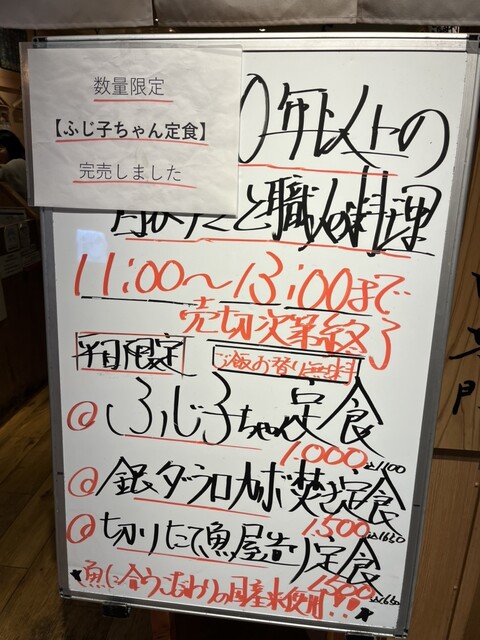 数量限定
【ふじ子ちゃん定食】
完売しました
0年以上の
職人料理
11:00〜13:00まで
売切次第終了
平日限定
ご飯お替り無料
@ ふじ子ちゃん定食
1.000 込1100
@ 銀ダラロカボ焚き定食
1.500 込1650
@ 切りたて魚屋造り定食
1.500 込1650
★魚に合うこだわりの国産米使用!!★